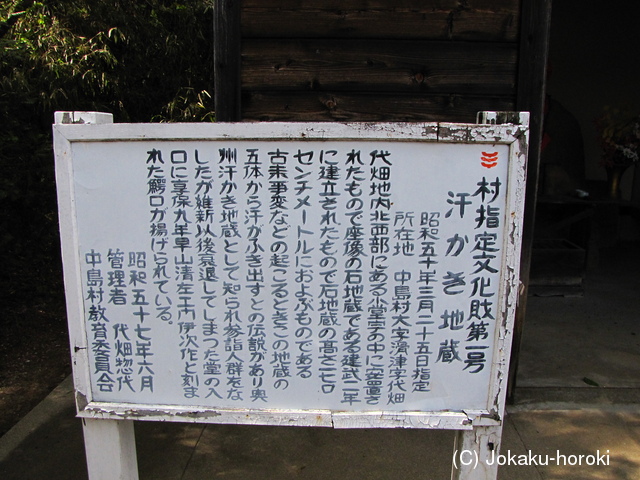 村指定文化財第一号
汗かき地蔵
昭和五十年三月二十五日指定
所在地 中島村大字滑津字代畑
代畑地内北西部にある小堂宇の中に安置さ
れたもので座像の石地蔵である建武二年
に建立されたもので石地蔵の高さ七〇
センチメートルにおよぶものである
古来事変などの起こるときこの地蔵の
五体から汗がふき出すとの伝説があり奥
州汗かき地蔵として知られ参詣人群をな
したが維新以後衰退してしまつた堂の入
口に享保九年車山清左エ門伊次作と刻ま
れた鰐口が揚げられている。
昭和五十七年六月
管理者 代畑惣代
中島村教育委員会
(C) Jokaku-horoki